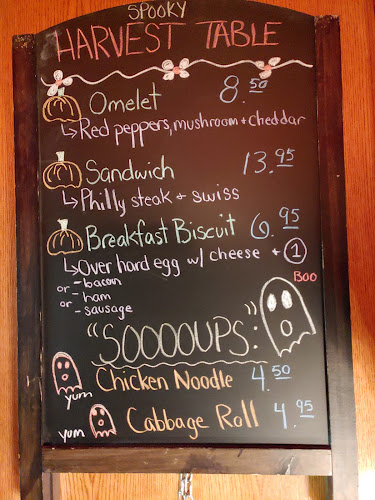 SPOOKY
HARVEST TABLE
Omelet 8.50
↳ Red peppers, mushroom + cheddar
Sandwich 13.95
↳ Philly steak + swiss
Breakfast Biscuit 6.95
↳ Over hard egg w/ cheese + 1
- bacon
or - ham
or - sausage
BOO
"SOOOOUPS:"
Chicken Noodle 4.50
yum
Cabbage Roll 4.95
yum